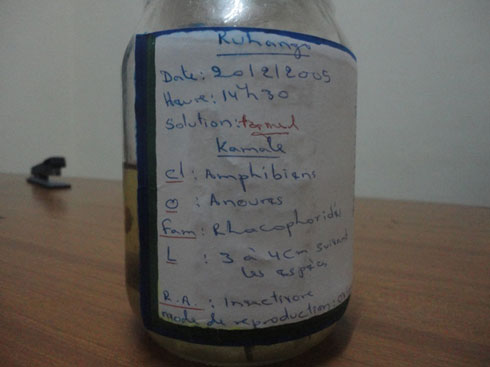 Ruhango
Date: 20/2/2005
Heure: 14h30
Solution: formol
Kamate
cl : Amphibiens
O : Anoures
Fam: Rhacophoridés
L : 3 à 4cm suivant
les espèces
R.A. : Insectivore
mode de reproduction: